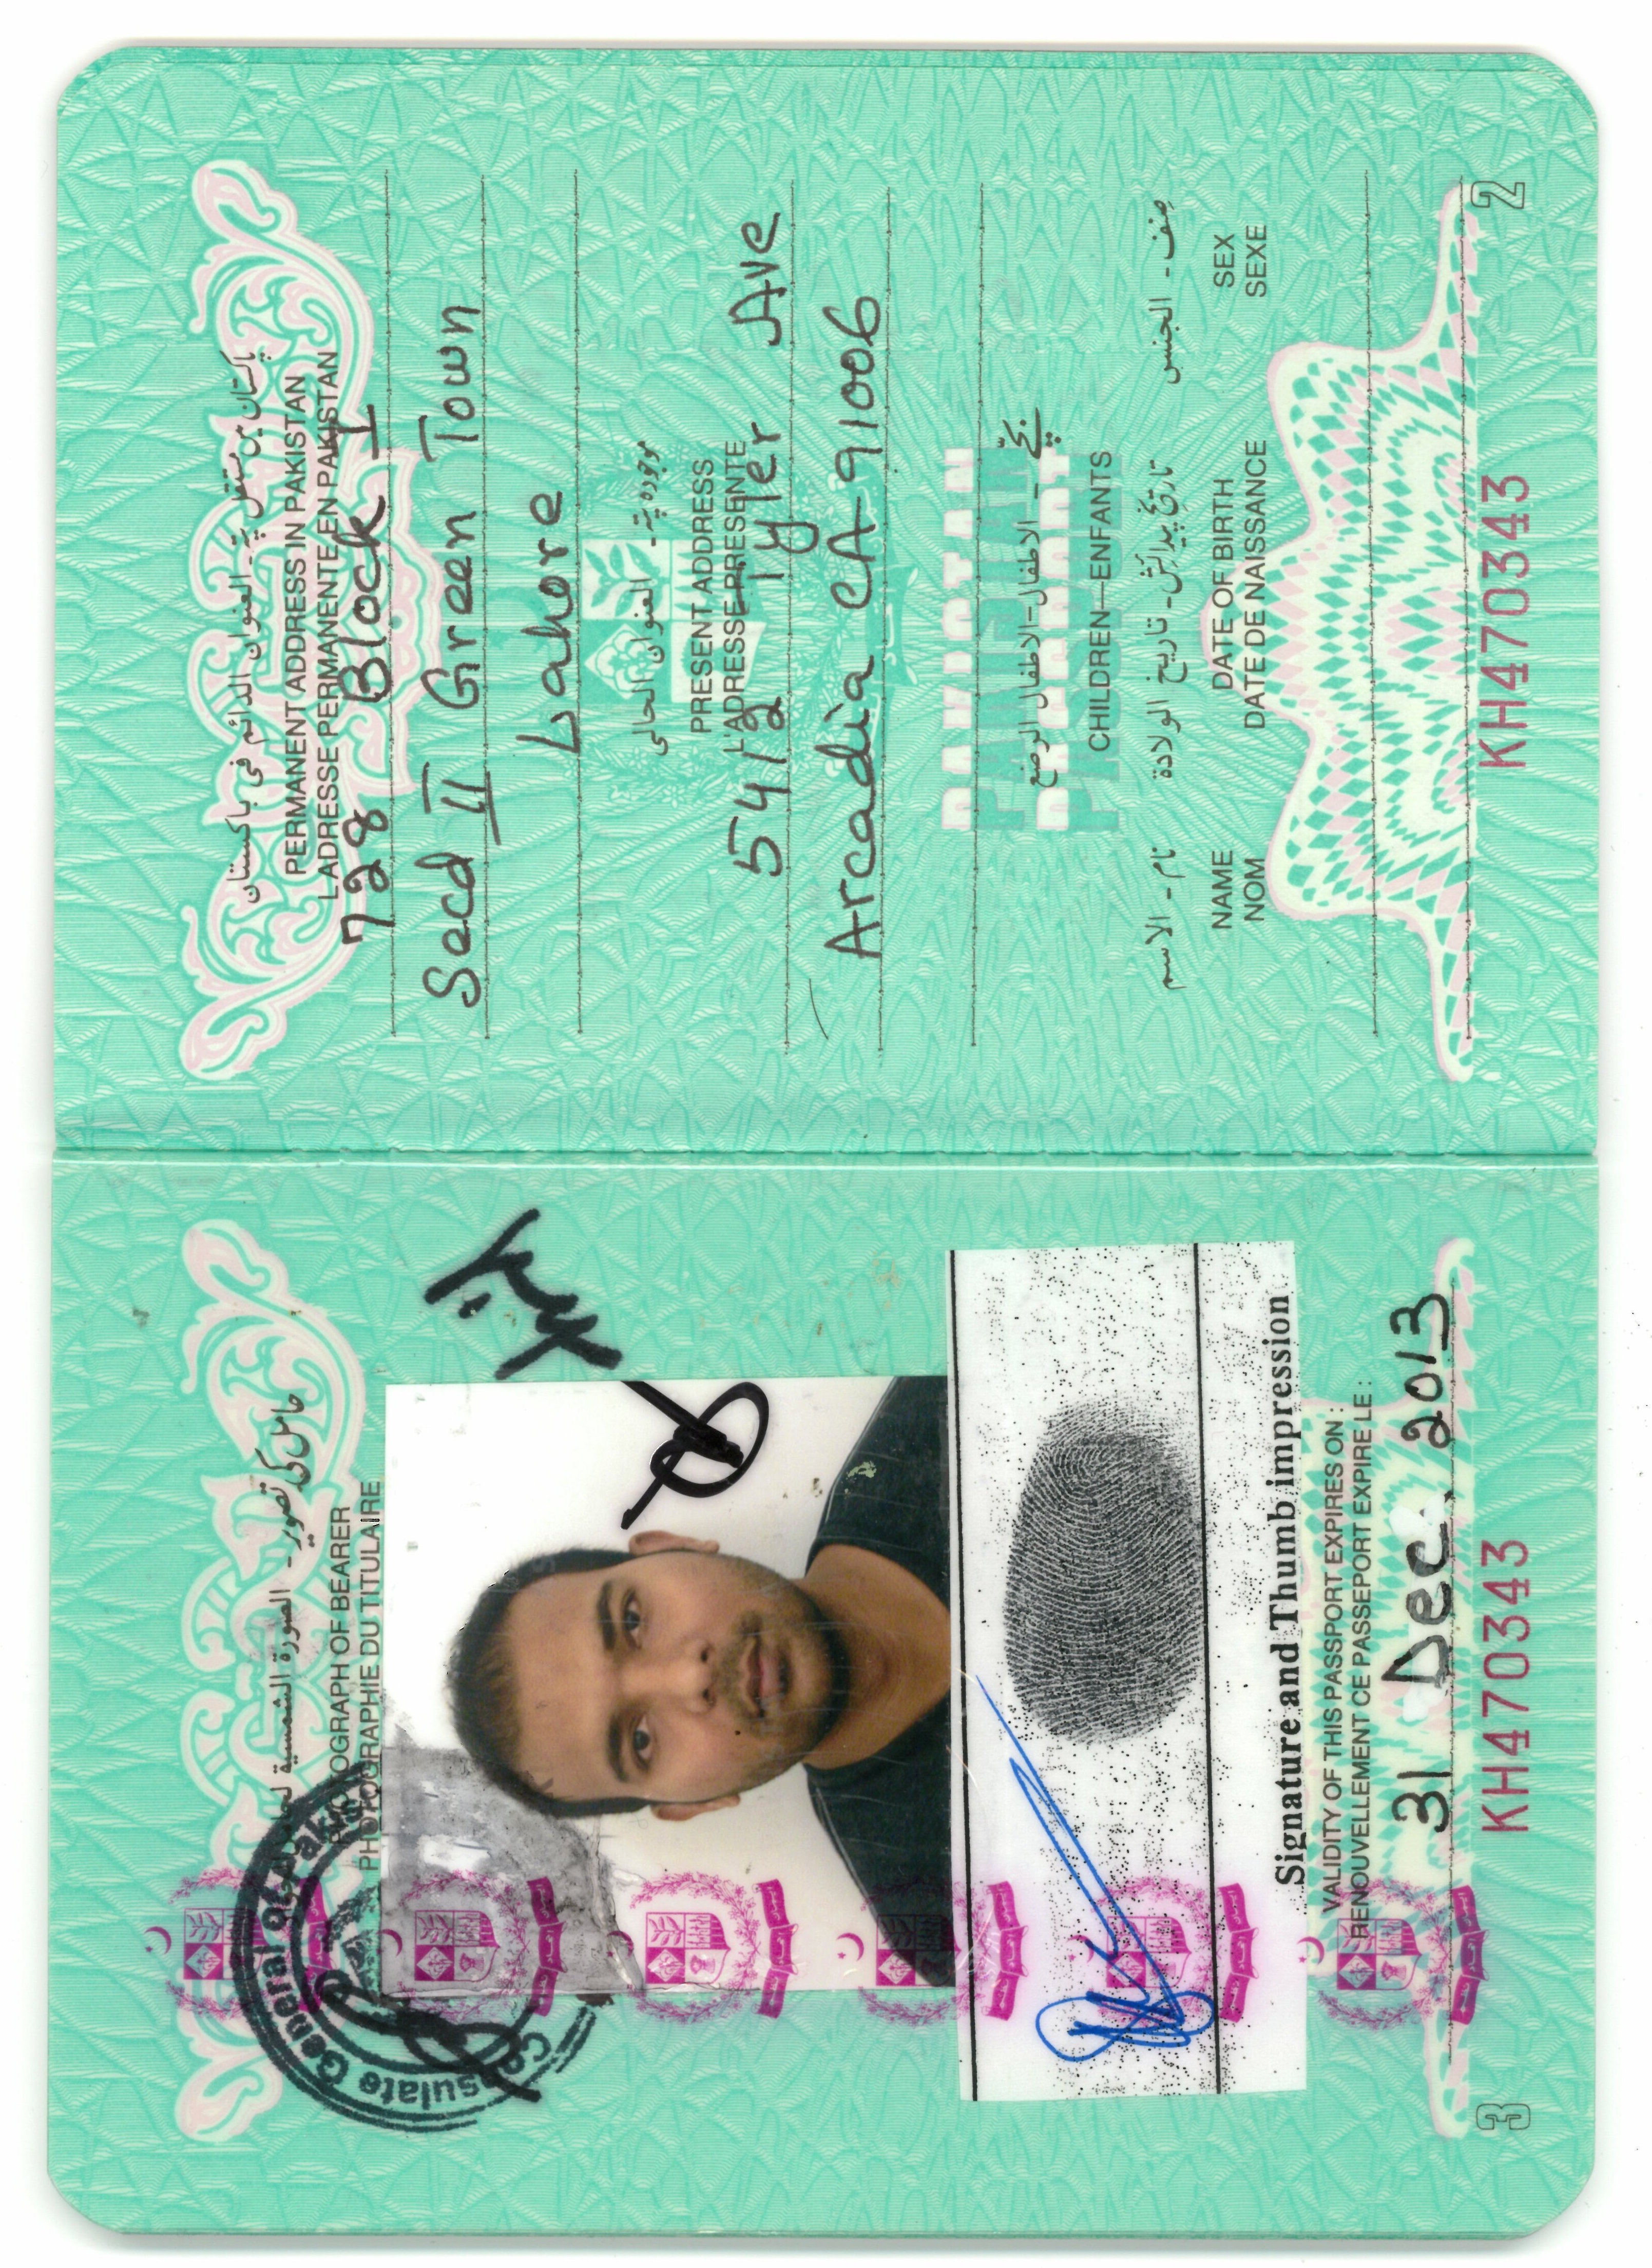 پاکستان میں مستقل پتہ - العنوان الدائم في باكستان
PERMANENT ADDRESS IN PAKISTAN
LADRESSE PERMANENTE EN PAKISTAN
728 Block I
Secd II Green Town
Lahore
موجودہ پتہ - العنوان الحالي
PRESENT ADDRESS
L'ADRESSE PRESENTE
5412 Tyler Ave
Arcadia CA 91006
PAKISTAN
بچے - الاطفال-الاطفال الرضع
CHILDREN—ENFANTS
نام - الاسم تاریخ پیدائش - تاريخ الولادة صنف - الجنس
NAME DATE OF BIRTH SEX
NOM DATE DE NAISSANCE SEXE
2
KH470343
حامل کی تصویر - الصورة الشمسية
PHOTOGRAPH OF BEARER
PHOTOGRAPHIE DU TITULAIRE
Consulate General of Pakis
Signature and Thumb impression
VALIDITY OF THIS PASSPORT EXPIRES ON :
RENOUVELLEMENT CE PASSEPORT EXPIRE LE :
31 Dec. 2013
3
KH470343